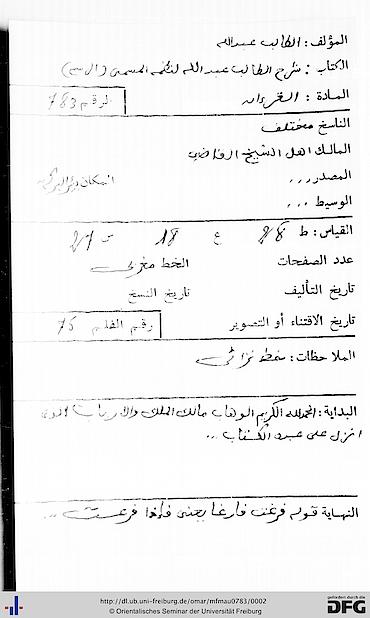 المؤلف: الطالب عبد الله
الكتاب: شرح الطالب عبد الله لنظمه المسمى (الرسم)
المادة: القرءان
الرقم 783
الناسخ مختلف
المالك اهل الشيخ القاضي
المصدر...
المكان
الوسيط ...
القياس: ط ع 18 س
عدد الصفحات الخط مغربي
تاريخ التأليف تاريخ النسخ
تاريخ الاقتناء أو التصوير رقم الفلم 75
الملاحظات:
البداية: الحمد لله الكريم الوهاب مالك الملك والارباب الذي
انزل على عبده الكتاب ...
النهاية قوله فرغت فارغا يعني فإذا فرغت ...
http://dl.ub.uni-freiburg.de/omar/mfmau0783/0002
© Orientalisches Seminar der Universität Freiburg
gefördert durch die
DFG